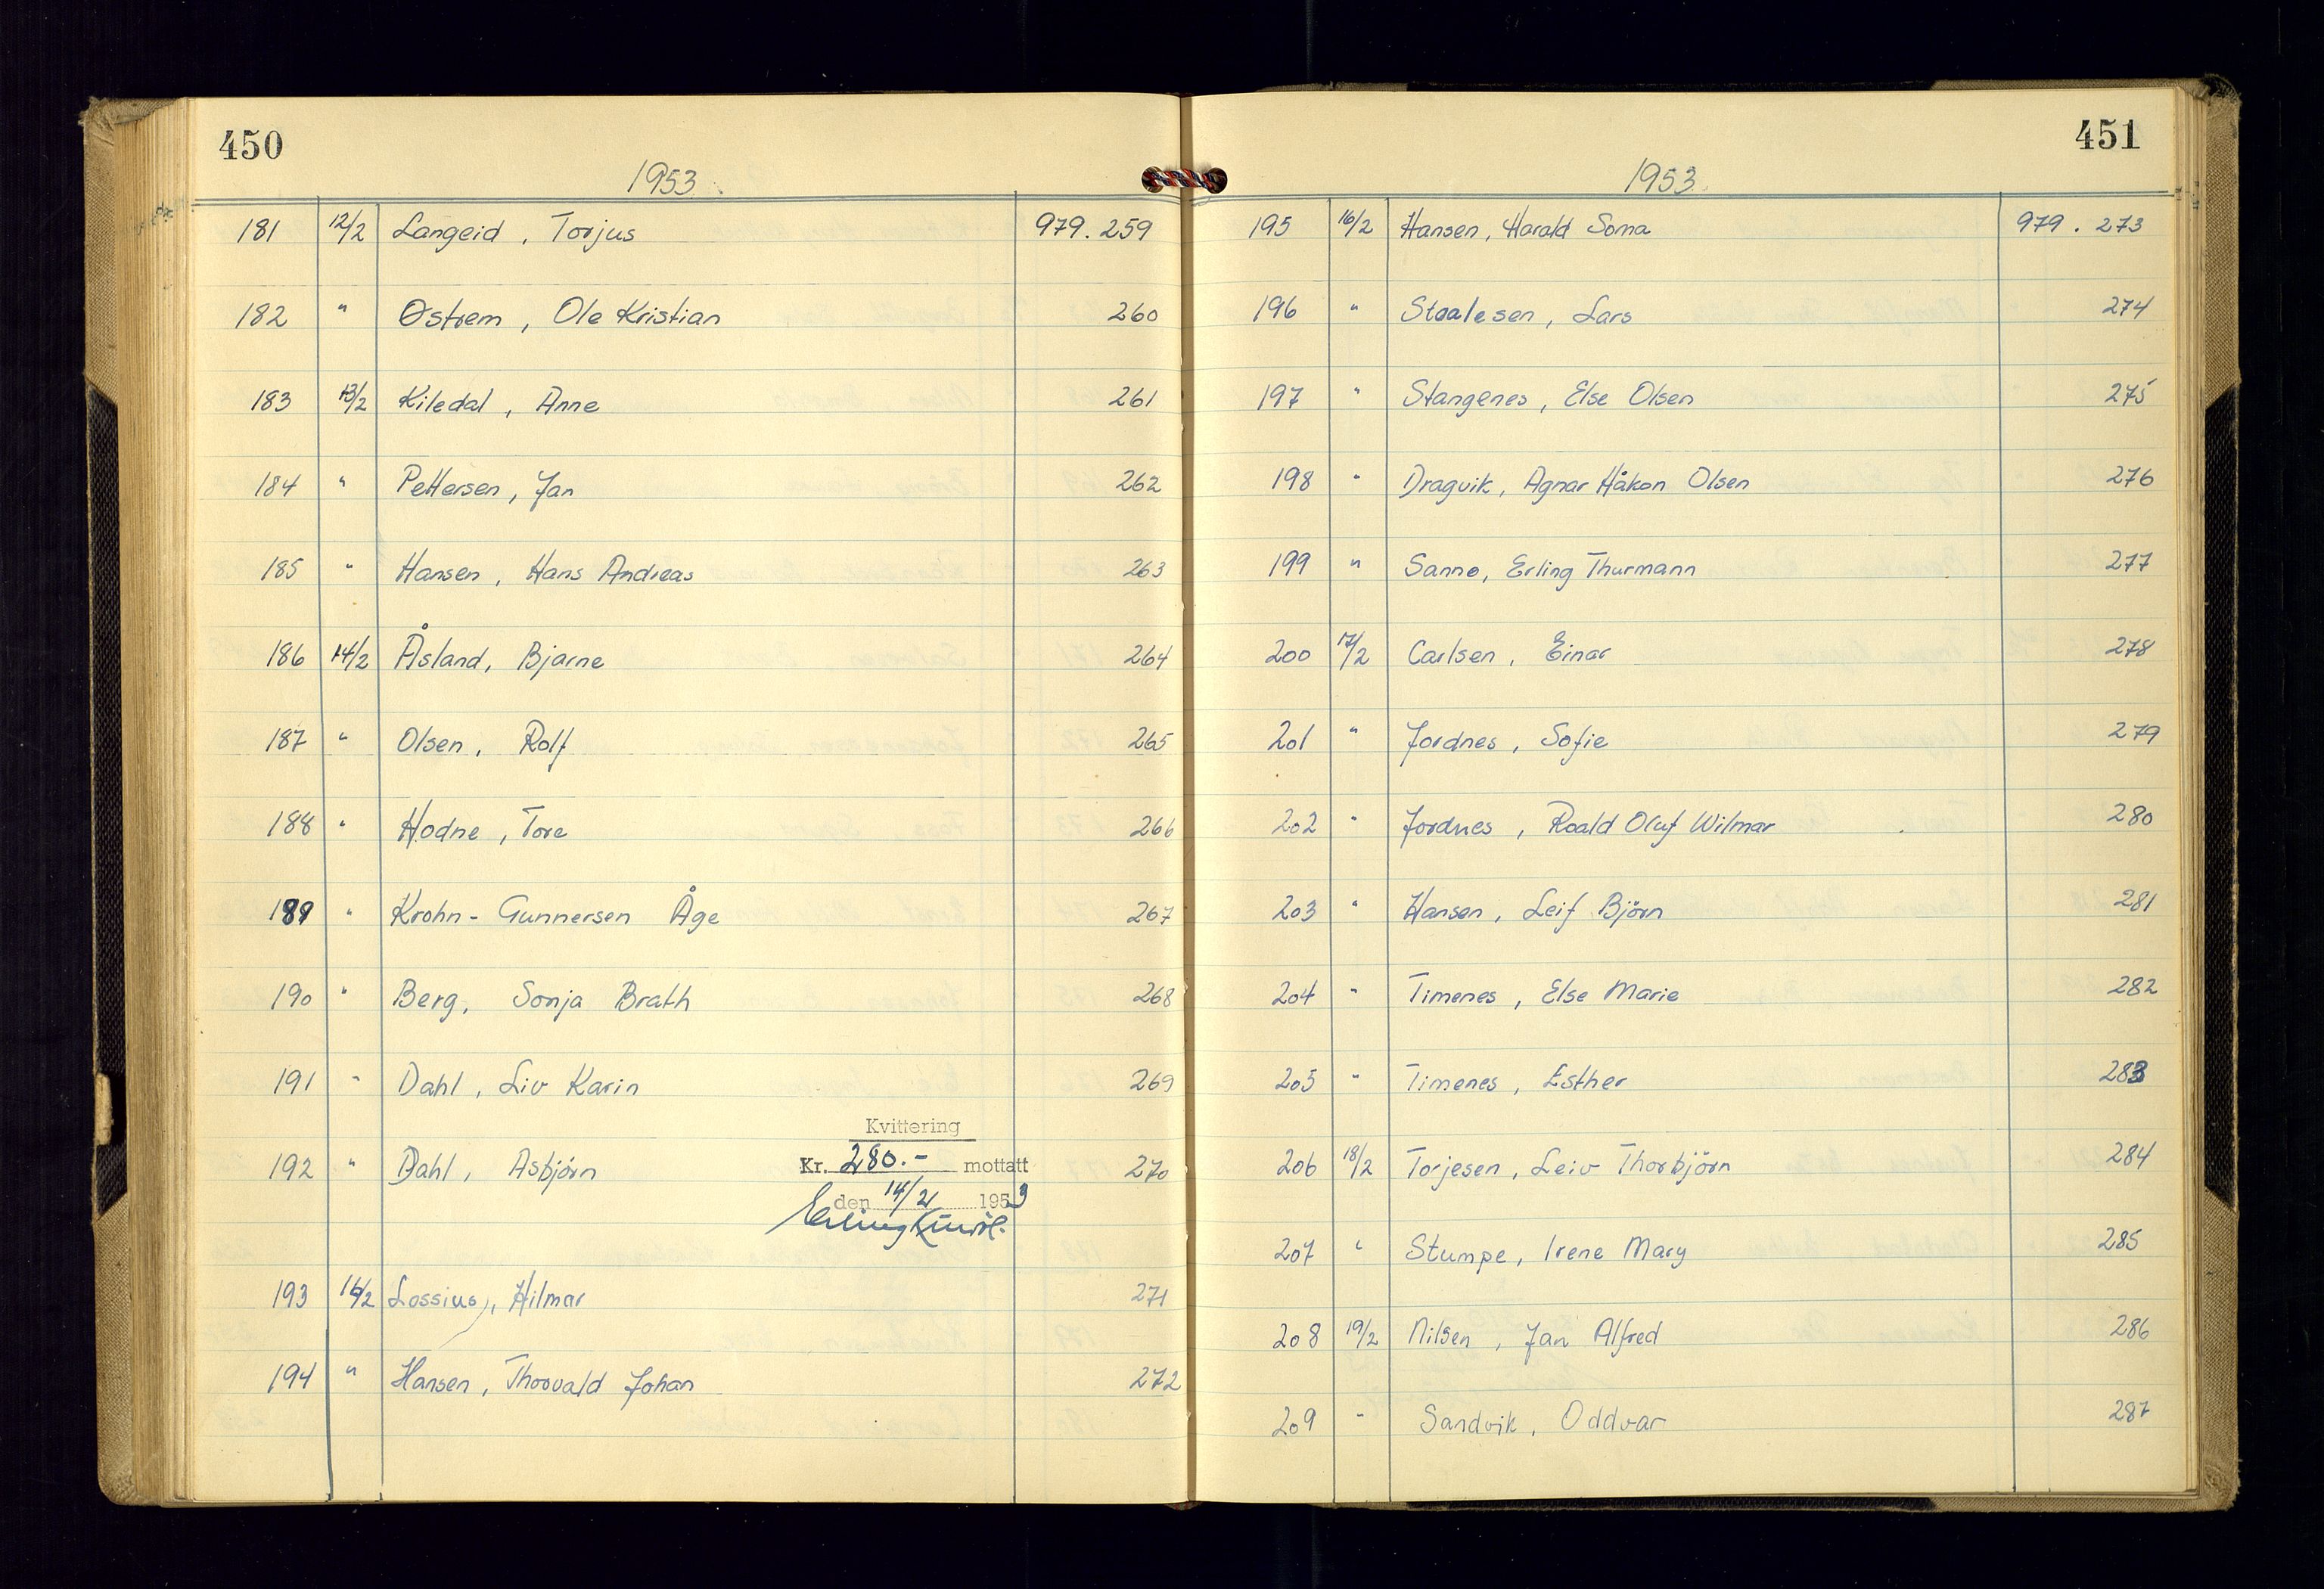 450
1953.
181 12/2 Langeid, Torjus 979.259
182 " Østrem, Ole Kristian 260
183 13/2 Kiledal, Anne 261
184 " Pettersen, Jan 262
185 " Hansen, Hans Andreas 263
186 14/2 Åsland, Bjarne 264
187 " Olsen, Rolf 265
188 " Hodne, Tore 266
189 " Krohn-Gunnersen Åge 267
190 " Berg, Sonja Brath 268
191 " Dahl, Liv Karin 269
Kvittering
192 " Dahl, Asbjörn Kr. 280.- mottatt 270
den 14/2 1953
193 16/2 Lossius, Hilmar 271
194 " Hansen, Thorvald Johan 272
451
1953.
195 16/2 Hansen, Harald Soma 979.273
196 " Staalesen, Lars 274
197 " Stangenes, Else Olsen 275
198 " Dragvik, Agnar Håkon Olsen 276
199 " Sanne, Erling Thurmann 277
200 17/2 Carlsen, Einar 278
201 " Jordnes, Sofie 279
202 " Jordnes, Roald Oluf Wilmar 280
203 " Hansen, Leif Björn 281
204 " Timenes, Else Marie 282
205 " Timenes, Esther 283
206 18/2 Torjesen, Leiv Thorbjörn 284
207 " Stumpe, Irene Mary 285
208 19/2 Nilsen, Jan Alfred 286
209 " Sandvik, Oddvar 287